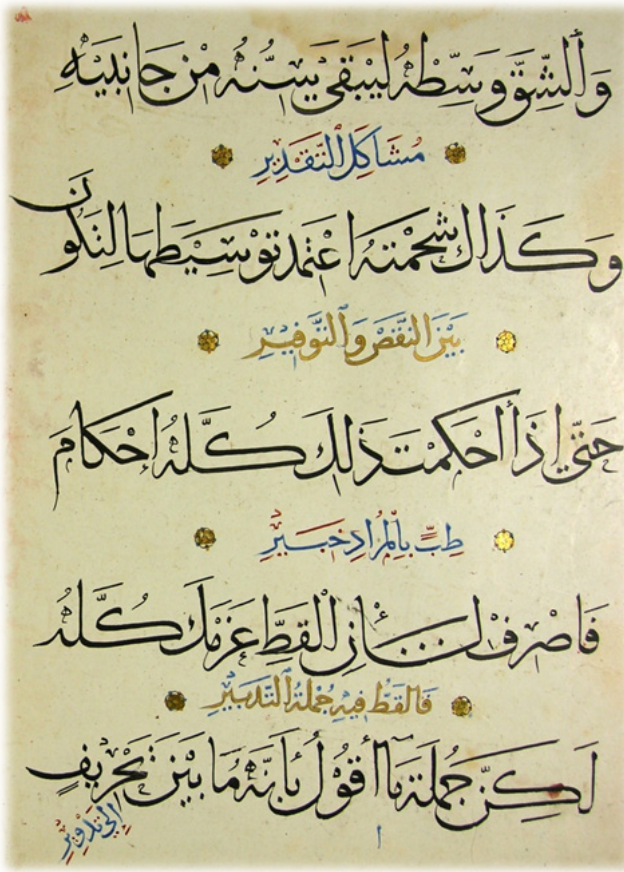 وَالشِّقَّ وَسِّطْهُ لِيَبْقَى سِنُّهُ مِنْ جَانِبَيْهِ
مُشَاكِلَ التَّقْدِيرِ
وَكَذَاكَ شَحْمَتَهُ اعْتَمِدْ تَوْسِيطَهَا لِتَكُونَ
بَيْنَ النَّقْصِ وَالتَّوْفِيرِ
حَتَّى إِذَا أَحْكَمْتَ ذَلِكَ كُلَّهُ إِحْكَامَ
طِبٍّ بِالْمُرَادِ خَبِيرِ
فَاصْرِفْ لِشَأْنِ الْقَطِّ عَزْمَكَ كُلَّهُ
فَالْقَطُّ فِيهِ جُمْلَةُ التَّدْبِيرِ
لَكِنَّ جُمْلَةَ مَا أَقُولُ بِأَنَّهُ مَا بَيْنَ تَحْرِيفٍ
إِلَى تَدْوِيرِ